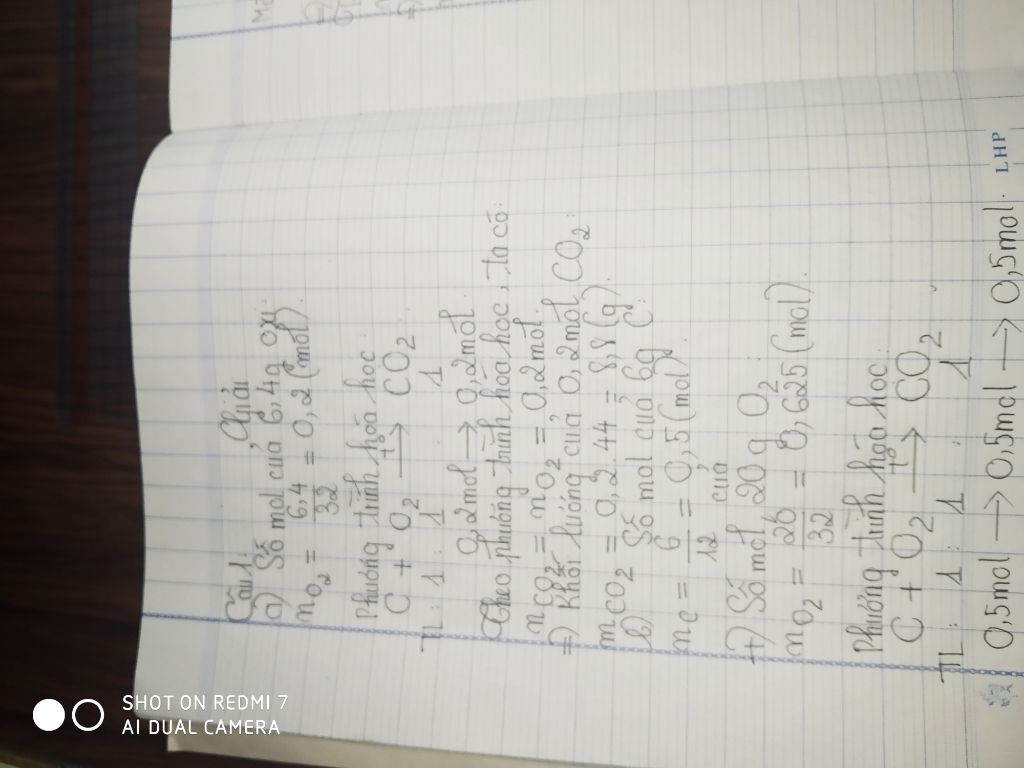 Giải
Câu 1:
a) Số mol của 6,4g oxi:
nO2 = 6,4/32 = 0,2 (mol).
Phương trình hoá học:
C + O2 t°→ CO2
TL: 1 : 1 : 1
0,2mol → 0,2mol
Theo phương trình hoá học, ta có:
nCO2 = nO2 = 0,2mol.
=) Khối lượng của 0,2mol CO2:
mCO2 = 0,2 . 44 = 8,8 (g).
b) Số mol của 6g C:
nC = 6/12 = 0,5 (mol).
+) Số mol của 20g O2:
nO2 = 20/32 = 0,625 (mol).
Phương trình hoá học:
C + O2 t°→ CO2
TL: 1 : 1 : 1
0,5mol → 0,5mol → 0,5mol.
LHP
SHOT ON REDMI 7
AI DUAL CAMERA